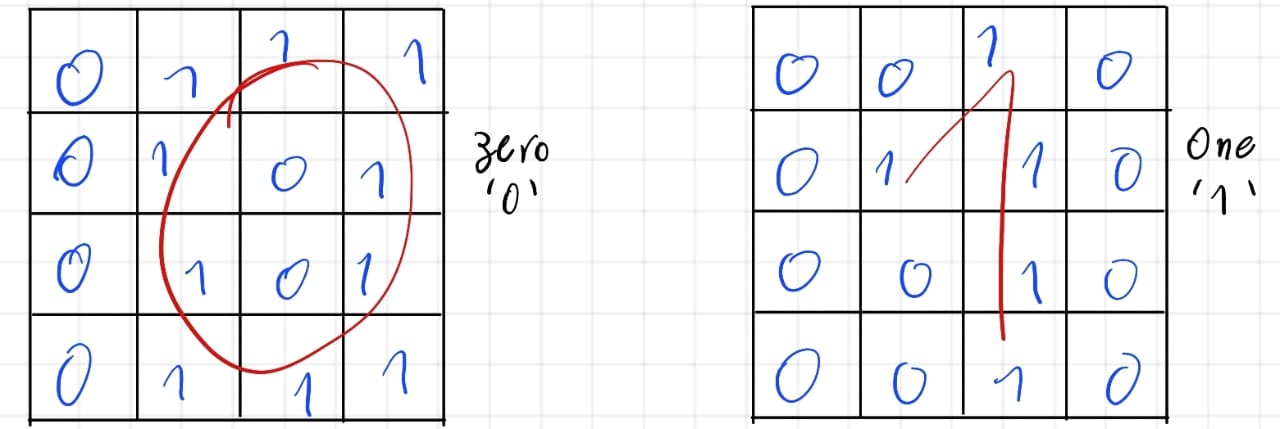 0 1 1 1
0 1 0 1
0 1 0 1
0 1 1 1
zero
'0'
0 0 1 0
0 1 1 0
0 0 1 0
0 0 1 0
One
'1'